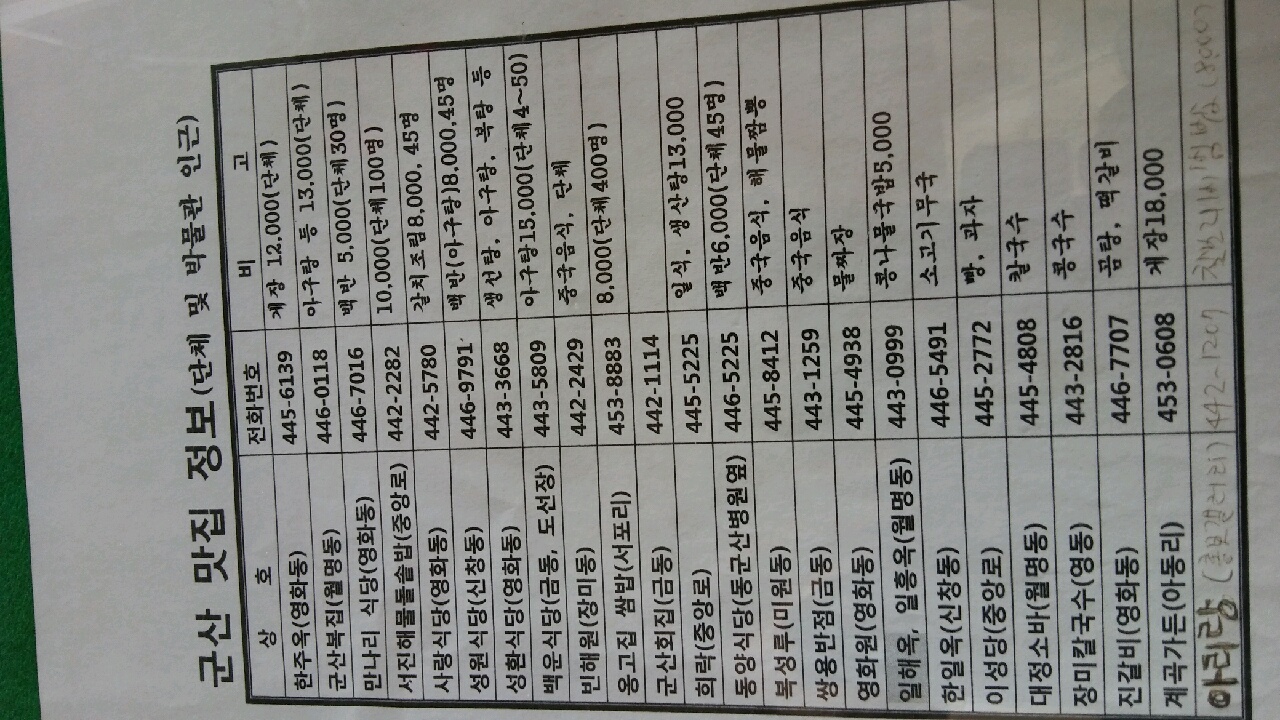 군산 맛집 정보(단체 및 박물관 인근)
상 호 전화번호 비 고
한주옥(영화동) 445-6139 게장 12,000(단체)
군산복집(월명동) 446-0118 아구탕 등 13,000(단체)
만나리 식당(영화동) 446-7016 백반 5,000(단체30명)
서진해물돌솥밥(중앙로) 442-2282 10,000(단체100명)
사랑식당(영화동) 442-5780 갈치조림8,000, 45명
성원식당(신창동) 446-9791 백반(아구탕)8,000,45명
성환식당(영화동) 443-3668 생선탕, 아구탕, 복탕 등
백운식당(금동, 도선장) 443-5809 아구탕15,000(단체4~50)
빈해원(장미동) 442-2429 중국음식, 단체
옹고집 쌈밥(서포리) 453-8883 8,000(단체400명)
군산회집(금동) 442-1114
희락(중앙로) 445-5225 일식, 생산탕13,000
동양식당(동군산병원옆) 446-5225 백반6,000(단체45명)
복성루(미원동) 445-8412 중국음식, 해물짬뽕
쌍용반점(금동) 443-1259 중국음식
영화원(영화동) 445-4938 물짜장
일해옥, 일흥옥(월명동) 443-0999 콩나물국밥5,000
한일옥(신창동) 446-5491 소고기무국
이성당(중앙로) 445-2772 빵, 과자
대정소바(월명동) 445-4808 칼국수
장미칼국수(영동) 443-2816 콩국수
진갈비(영화동) 446-7707 곰탕, 떡갈비
계곡가든(아동리) 453-0608 게장18,000
아리랑 442-1207